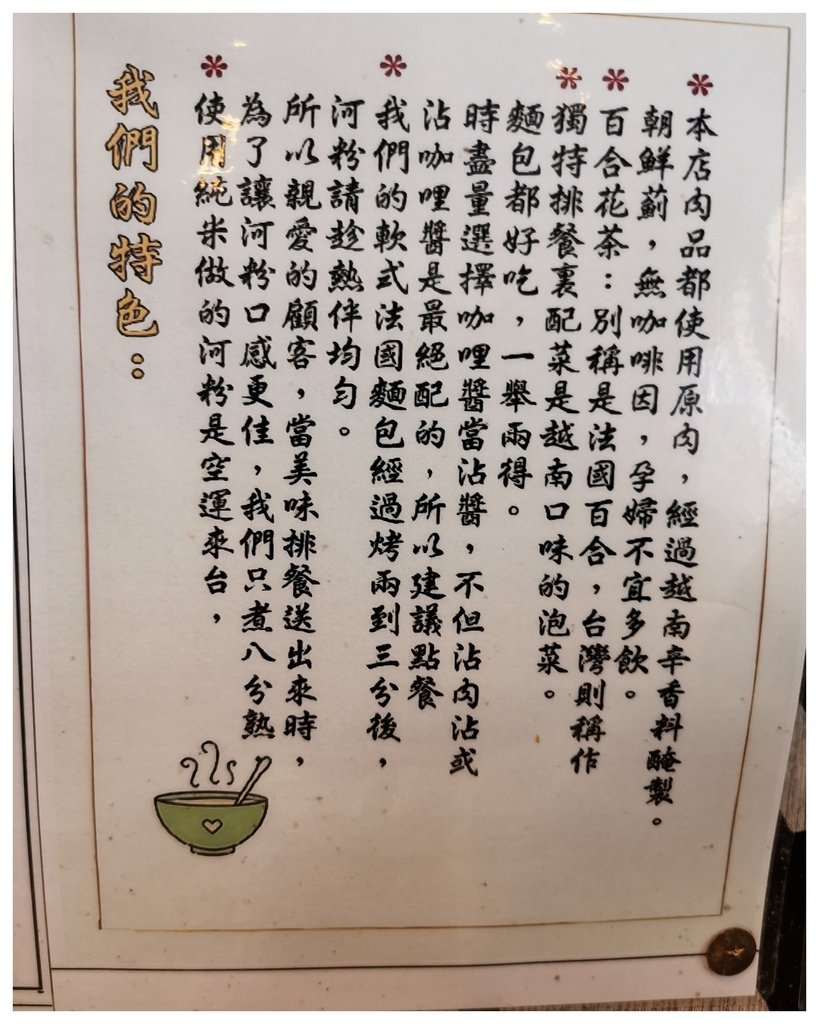 我們的特色：
*使用純米做的河粉是空運來台，
為了讓河粉口感更佳，我們只煮八分熟
所以親愛的顧客，當美味排餐送出來時，
河粉請趁熱伴均勻。
*我們的軟式法國麵包經過烤兩到三分後，
沾咖哩醬是最絕配的，所以建議點餐
時盡量選擇咖哩醬當沾醬，不但沾肉沾或
麵包都好吃，一舉兩得。
*獨特排餐裏配菜是越南口味的泡菜。
*百合花茶：別稱是法國百合，台灣則稱作
朝鮮薊，無咖啡因，孕婦不宜多飲。
*本店肉品都使用原肉，經過越南辛香料醃製。